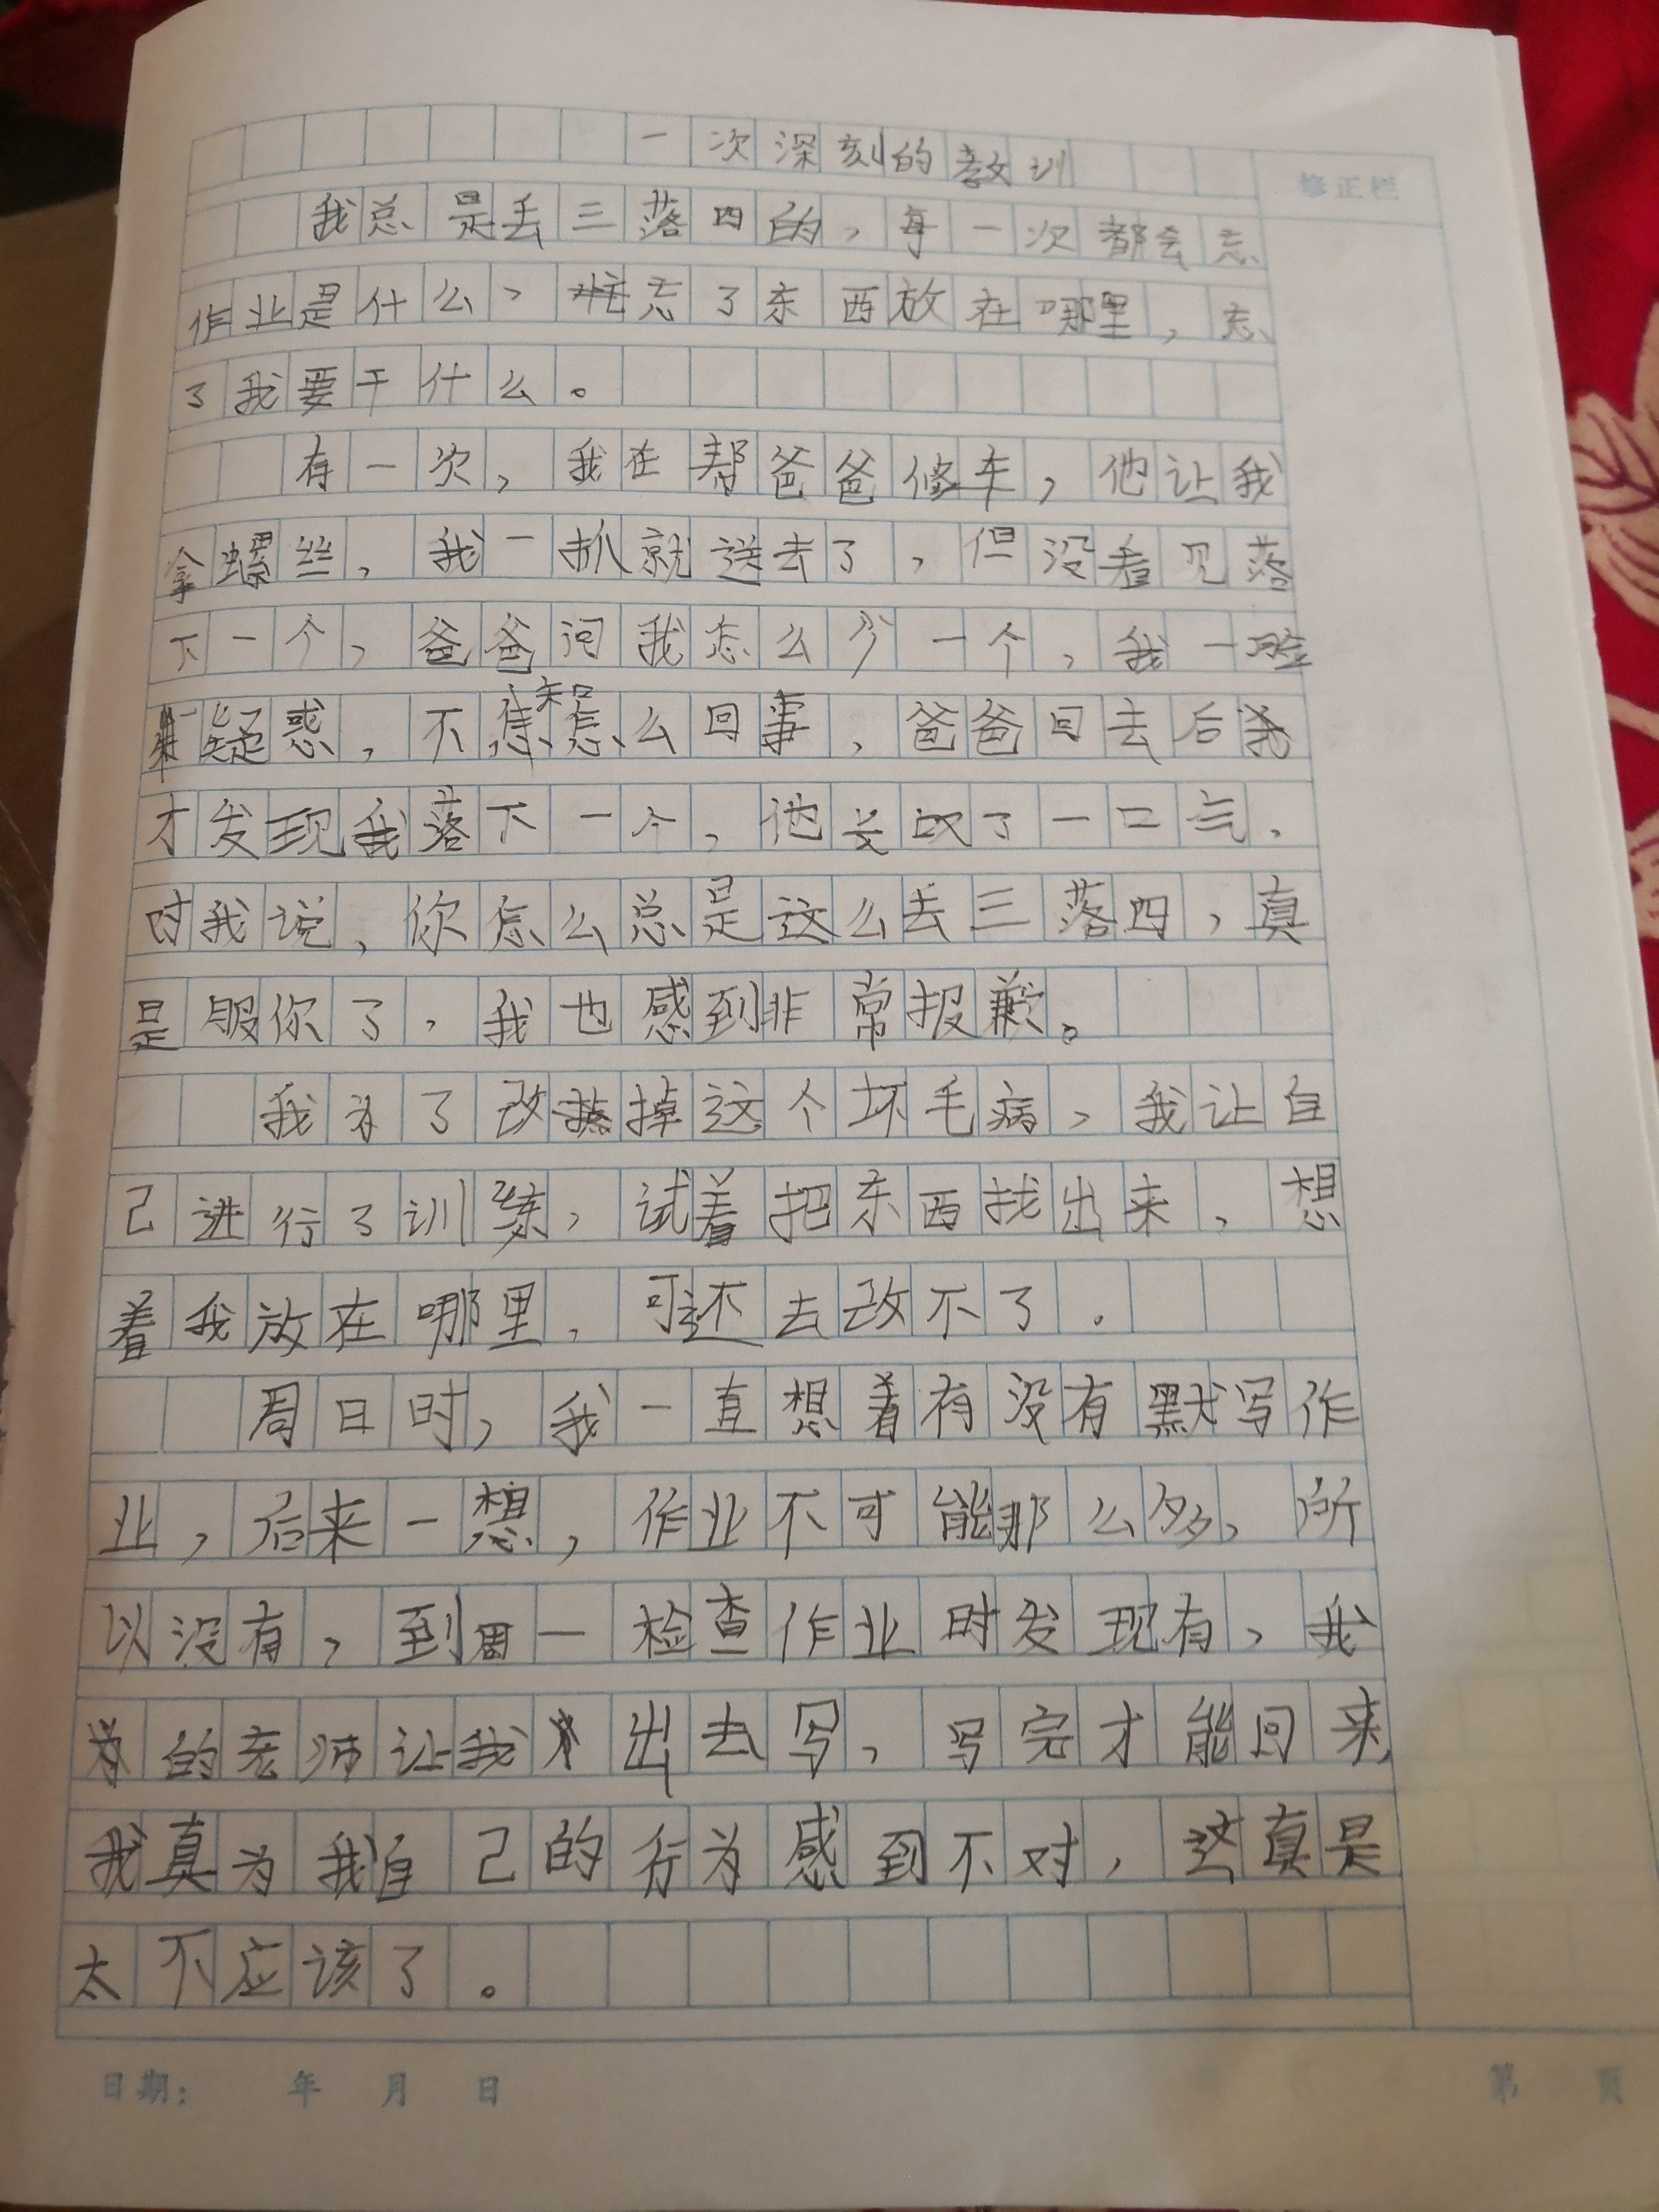 一次深刻的教训
修正栏
我总是丢三落四的，每一次都会忘
作业是什么，忘了东西放在哪里，忘
了我要干什么。
有一次，我在帮爸爸修车，他让我
拿螺丝，我一抓就送去了，但没看见落
下一个，爸爸问我怎么少一个，我一脸
疑惑，不知怎么回事，爸爸回去后我
才发现我落下一个，他长叹了一口气，
对我说，你怎么总是这么丢三落四，真
是服你了，我也感到非常报歉。
我为了改掉这个坏毛病，我让自
己进行了训练，试着把东西找出来，想
着我放在哪里，可还去改不了．
周日时，我一直想着有没有默写作
业，后来一想，作业不可能那么多，所
以没有，到周一检查作业时发现有，我
的老师让我出去写，写完才能回来
我真为我自己的行为感到不对，这真是
太不应该了。
日期： 年 月 日
第 页